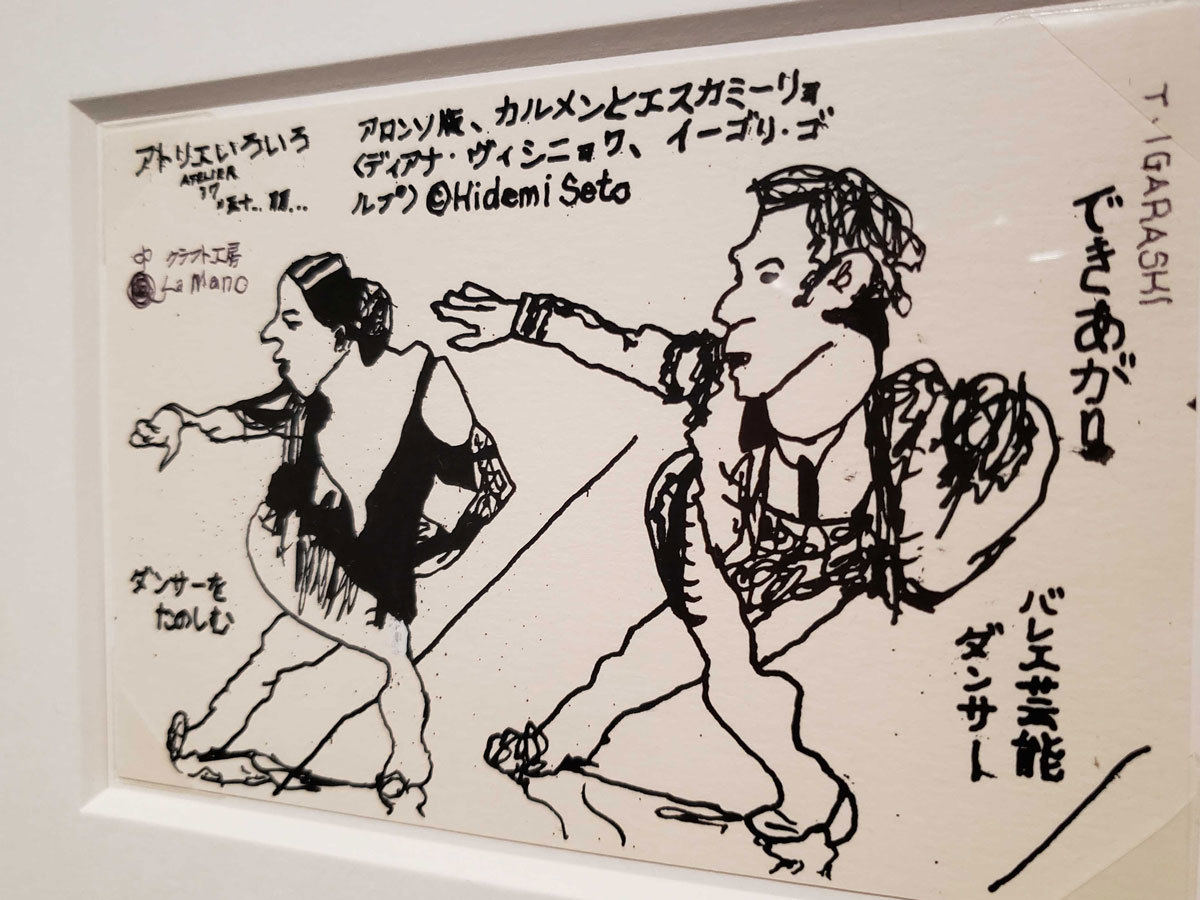 アトリエいろいろ
ATELIER
17
クラフト工房
La Mano
アロンソ版、カルメンとエスカミーリョ
(ディアナ・ヴィシニョワ、イーゴリ・ゴ
ルプ)©Hidemi Seto
T・IGARASHI
できあがロ
ダンサーを
たのしむ
バレエ芸能
ダンサー